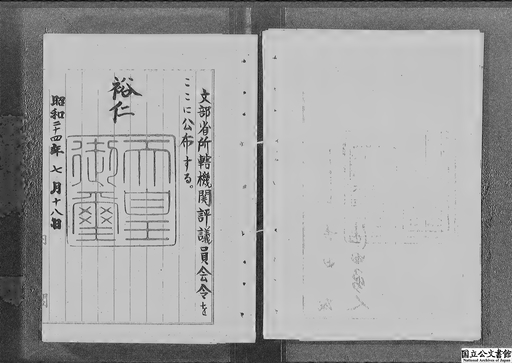 文部省所轄機関評議員会令を
ここに公布する。
裕仁
天皇
御璽
昭和二十四年七月十八日
国立公文書館
National Archives of Japan